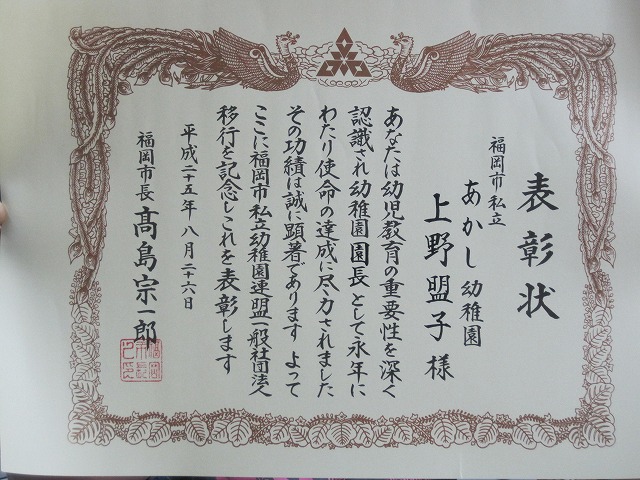 表彰状
福岡市私立
あかし幼稚園
上野盟子様
あなたは幼児教育の重要性を深く
認識され幼稚園園長として永年に
わたり使命の達成に尽力されました
その功績は誠に顕著であります よって
ここに福岡市私立幼稚園連盟一般社団法人
移行を記念しこれを表彰します
平成二十五年八月二十六日
福岡市長 髙島宗一郎